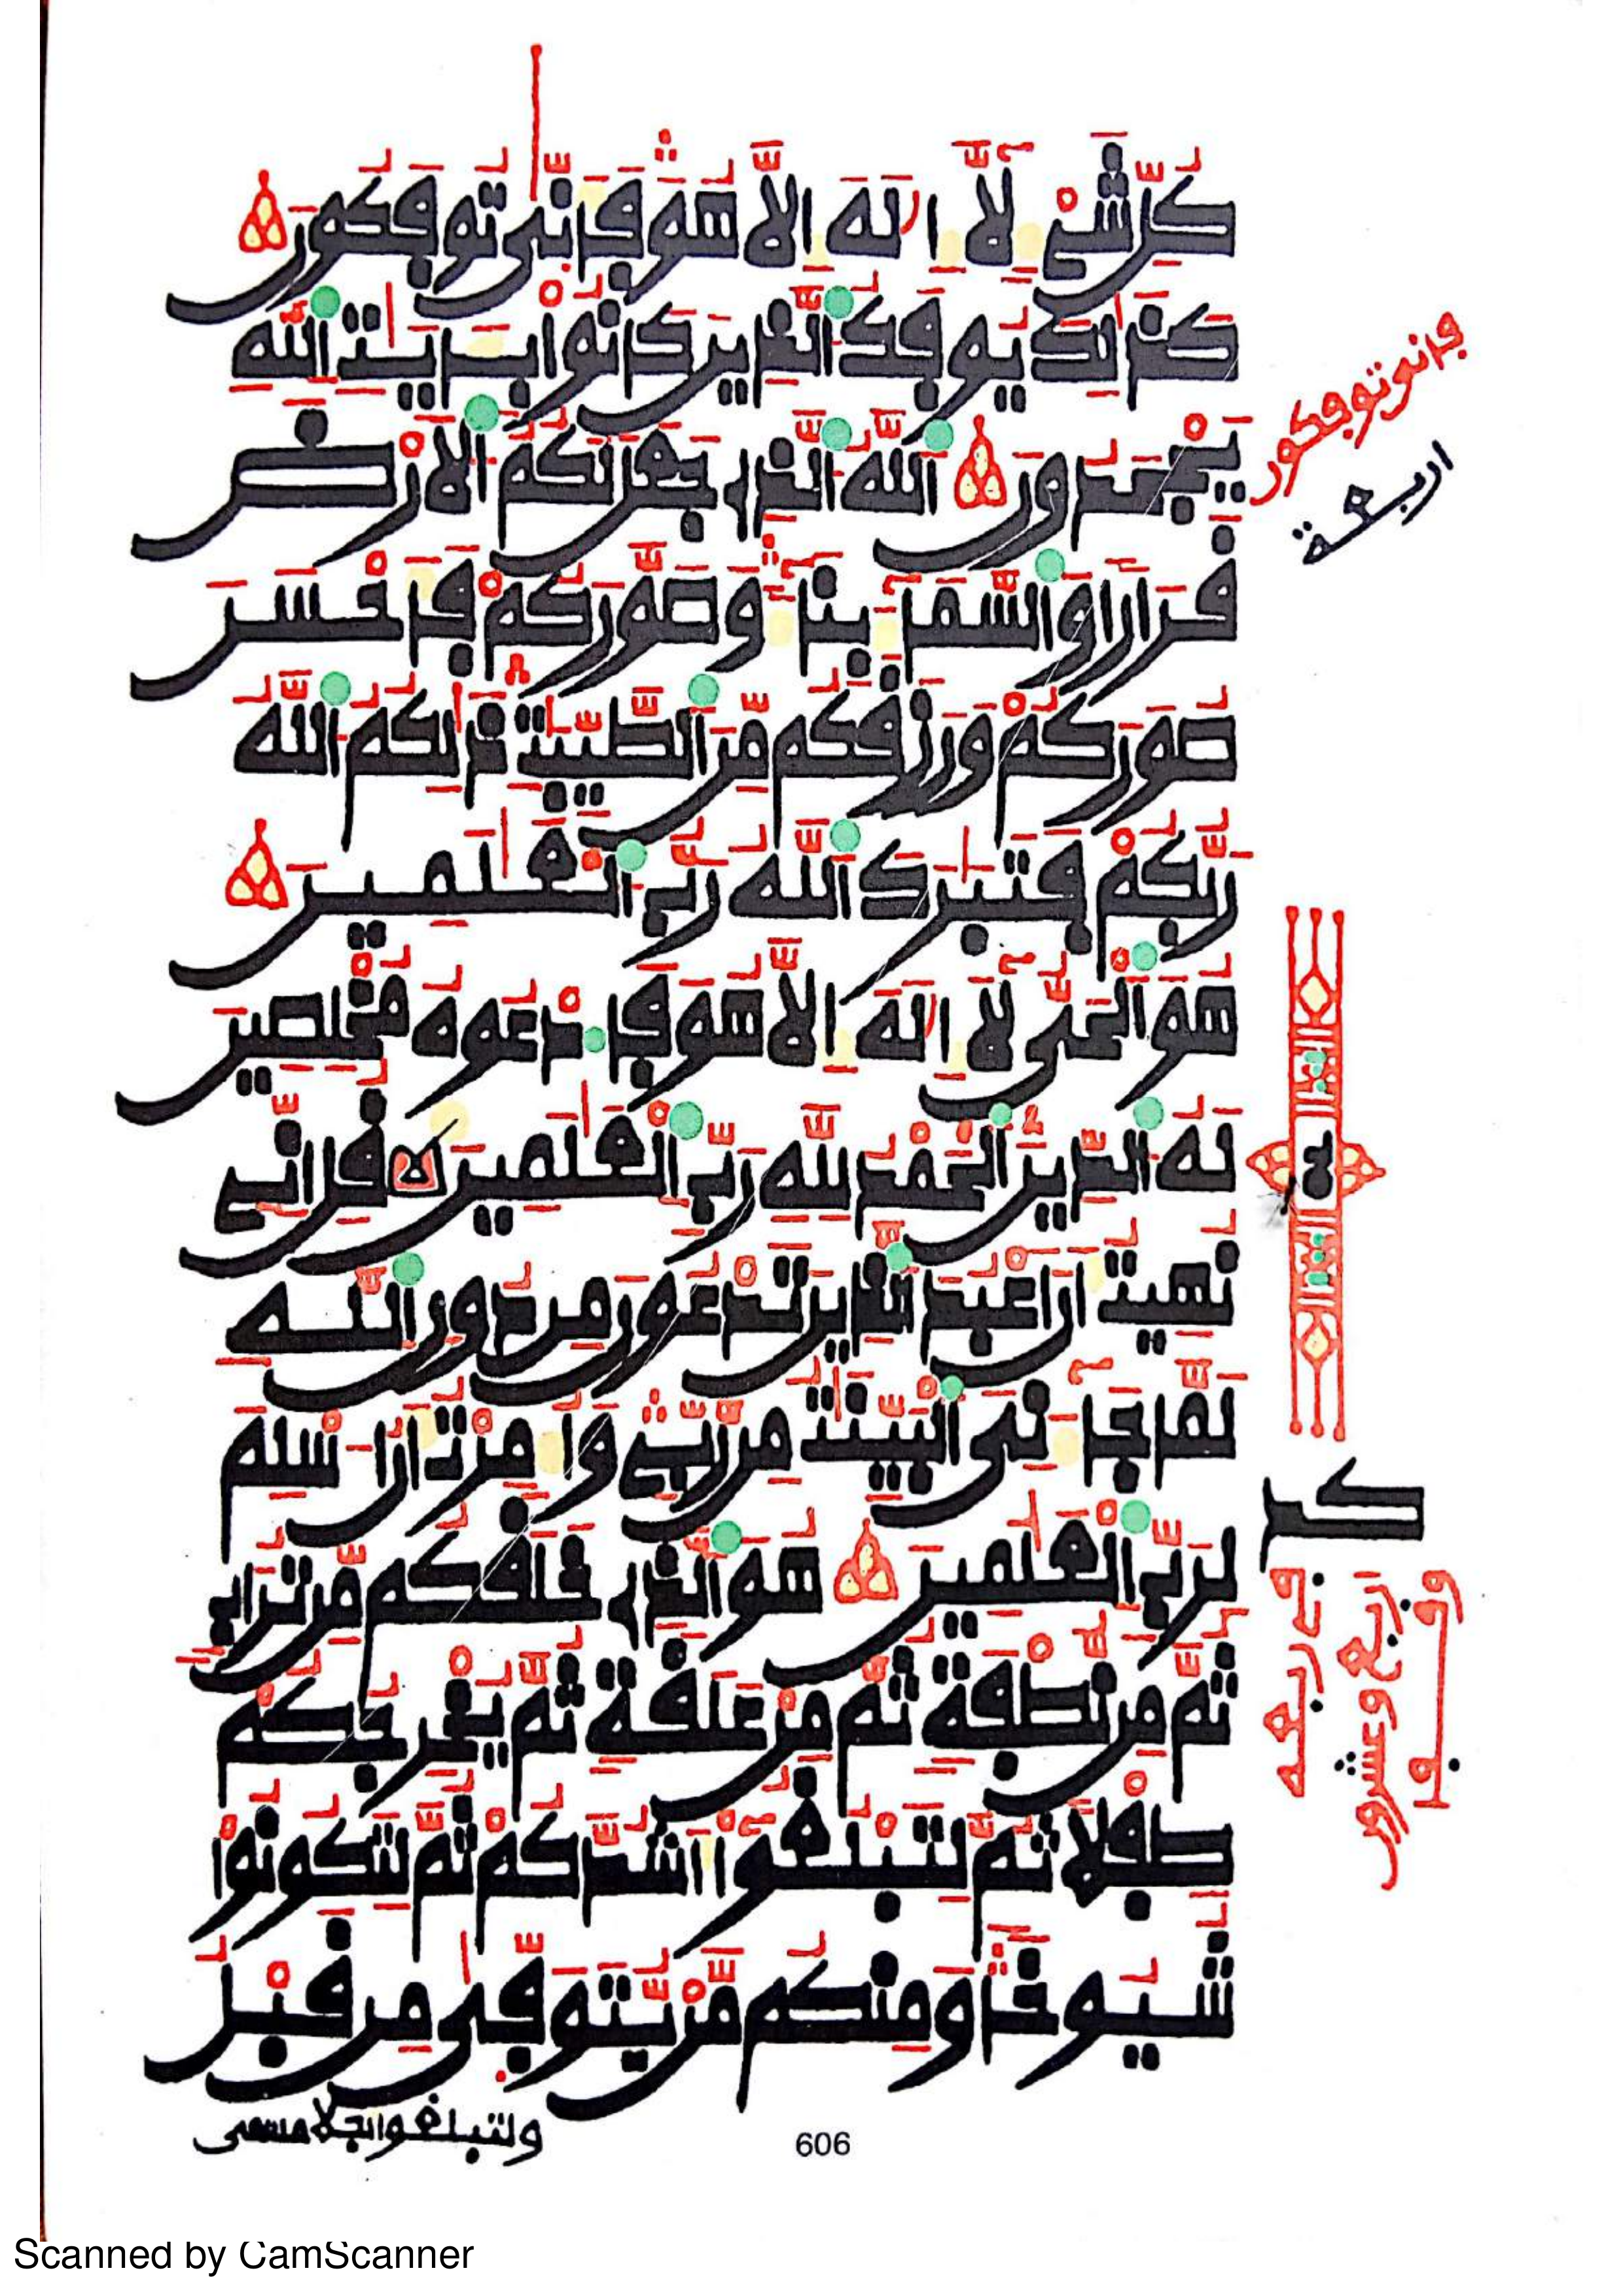 كُلِّ شَيْءٍ لَّا إِلَٰهَ إِلَّا هُوَ فَأَنَّىٰ تُوفَكُونَ
كَذَٰلِكَ يُوفَكُ ٱلَّذِينَ كَانُوا بِـَٔايَـٰتِ ٱللَّهِ
يَجْحَدُونَ ٱللَّهُ ٱلَّذِى جَعَلَ لَكُمُ ٱلْأَرْضَ
قَرَارًا وَٱلسَّمَآءَ بِنَآءً وَصَوَّرَكُمْ فَأَحْسَنَ
صُوَرَكُمْ وَرَزَقَكُم مِّنَ ٱلطَّيِّبَـٰتِ ذَٰلِكُمُ ٱللَّهُ
رَبُّكُمْ فَتَبَـٰرَكَ ٱللَّهُ رَبُّ ٱلْعَـٰلَمِينَ
هُوَ ٱلْحَىُّ لَآ إِلَٰهَ إِلَّا هُوَ فَٱدْعُوهُ مُخْلِصِينَ
لَهُ ٱلدِّينَ ٱلْحَمْدُ لِلَّهِ رَبِّ ٱلْعَـٰلَمِينَ قُلْ إِنِّى
نُهِيتُ أَنْ أَعْبُدَ ٱلَّذِينَ تَدْعُونَ مِن دُونِ ٱللَّهِ
لَمَّا جَآءَنِىَ ٱلْبَيِّنَـٰتُ مِن رَّبِّى وَأُمِرْتُ أَنْ أُسْلِمَ
لِرَبِّ ٱلْعَـٰلَمِينَ هُوَ ٱلَّذِى خَلَقَكُم مِّن تُرَابٍ
ثُمَّ مِن نُّطْفَةٍ ثُمَّ مِنْ عَلَقَةٍ ثُمَّ يُخْرِجُكُمْ
طِفْلًا ثُمَّ لِتَبْلُغُوٓا أَشُدَّكُمْ ثُمَّ لِتَكُونُوا
شُيُوخًا وَمِنكُم مَّن يُتَوَفَّىٰ مِن قَبْلُ
ولتبلغوا أجلا مسمى
606
فانى توفكون
اربعة
Scanned by CamScanner